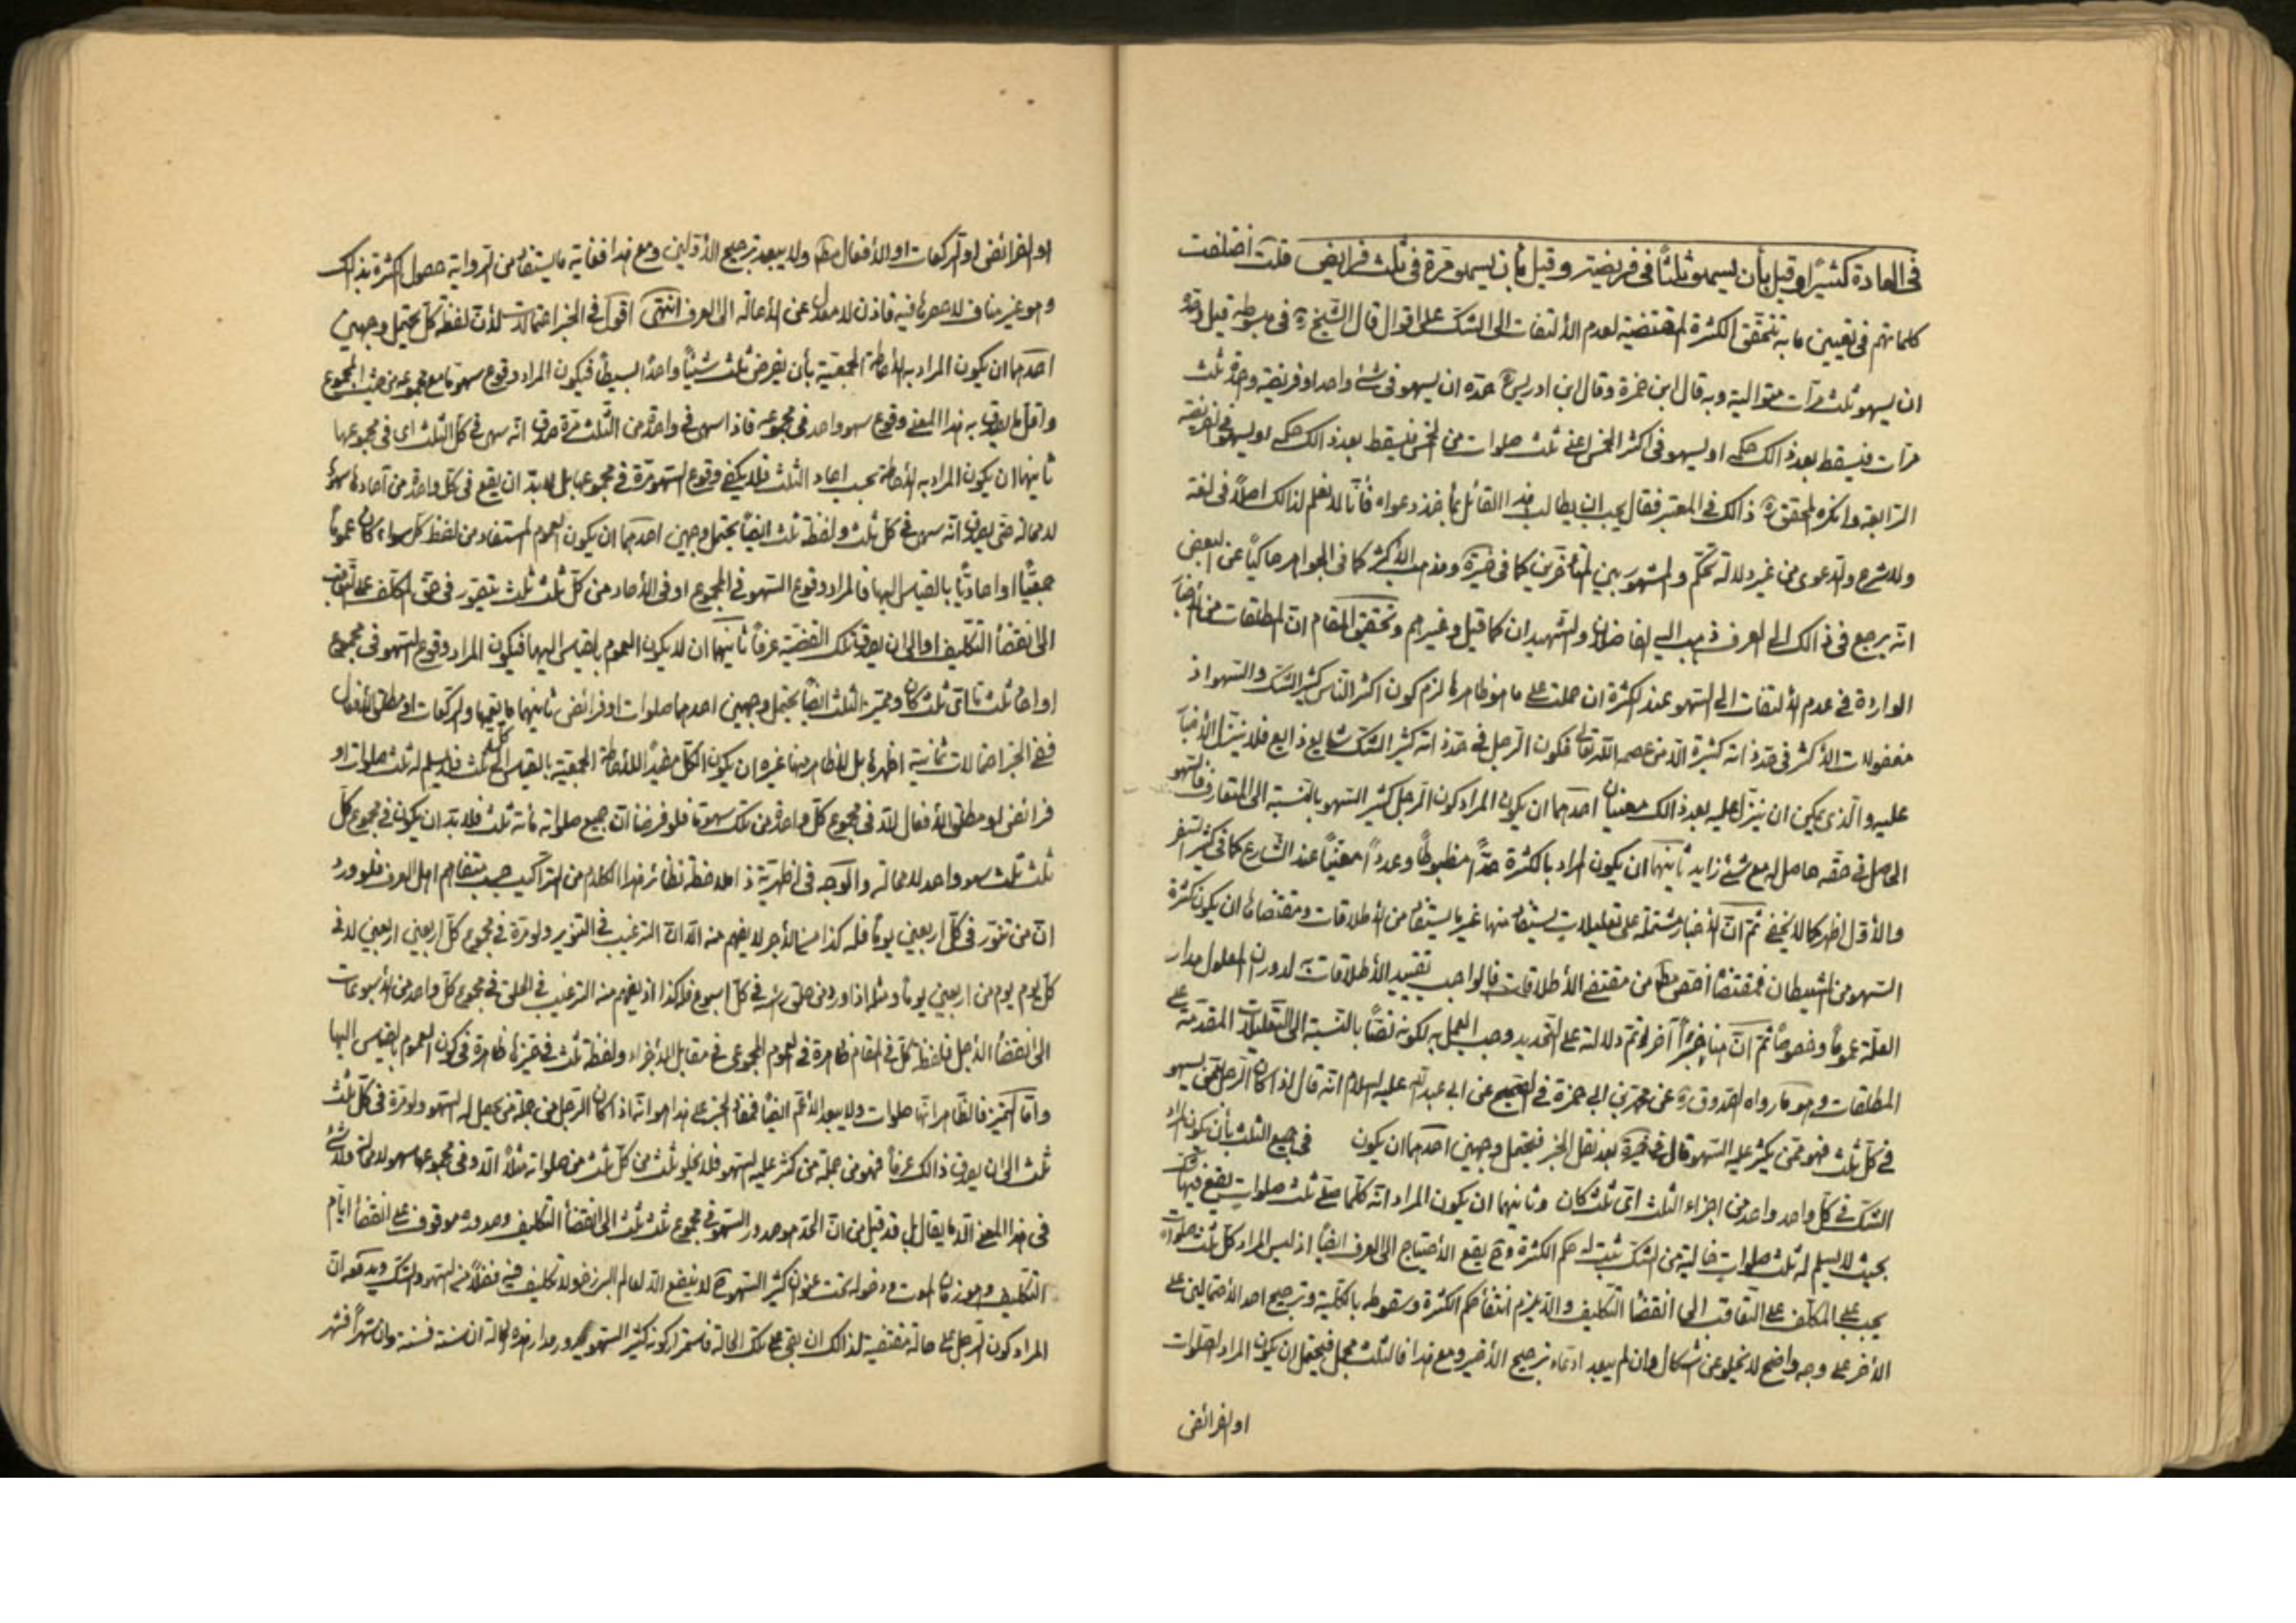 فى العادة كثيرًا وقيل بأن يسهو ثلثًا فى فريضة وقيل بأن يسهو مرة فى ثلث فرايض قلت اختلفت
كلماتهم فى تعيين ما به تتحقق الكثرة المقتضية لعدم الألتفات الى الشك على اقوال قال الشيخ ره فى مبسوطه قيل وحدّه
ان يسهو ثلث مرات متوالية وبه قال ابن حمزة وقال ابن ادريس حدّه ان يسهو فى شئ واحد او فريضة واحدة ثلث
مرات فيسقط بعد ذالك حكمه او يسهو فى اكثر الخمس اعنى ثلث صلوات من الخمس فيسقط بعد ذالك حكم السهو فى الفريضة
الرابعة وانكره المحقق ره ذالك فى المعتبر فقال يجب ان يطالب هذا القائل بمأخذ دعواه فأنّا لا نعلم لذالك اصلاً فى لغة
ولا شرع والدعوى من غير دلالة تحكّم والمشهور بين المتأخرين كما فى خيرة ومذهب الأكثر كما فى الجواهر حاكيًا عن البعض
انه يرجع فى ذالك الى العرف ذهب اليه الفاضلان والشهيدان كما قيل وغيرهم وتحقيق المقام ان المطلقات من الأخبار
الواردة فى عدم الألتفات الى السهو عند الكثرة ان حملت على ما هو ظاهرها لزم كون اكثر الناس كثير الشك والسهو اذ
معقولات الأكثر فى حد ذاته كثيرة الا من عصمه الله تعالى فكون الرجل فى حد ذاته كثير الشك شايع ذايع فلا ينزل الأخبار
عليه والّذى يمكن ان ينزل عليه بعد ذالك معنيان احدهما ان يكون المراد كون الرجل كثير السهو بالنسبة الى المتعارف فالسهو
الحاصل فى حقه حاصل له مع شئ زايد ثانيهما ان يكون المراد بالكثرة حدًّا مضبوطًا وعددًا معيّنًا عند الشارع كما فى كثير السفر
والأوّل اظهر كما لا يخفى ثم انّ الأخبار مشتملة على تعليلات يستفاد منها غير ما يستفاد من الأطلاقات ومقتضاها ان يكون كثرة
السهو من الشيطان فمقتضاها اخصّ مط من مقتضى الأطلاقات فالواجب تقييد الأطلاقات به لدوران المعلول مدار
العلة عمومًا وخصوصًا ثم انّ هنا خبرًا آخر لو تمّ دلالته على التحديد وجب العمل به لكونه نصًّا بالنسبة الى التعليلات المقدمة على
المطلقات وهو ما رواه الصدوق ره عن محمد بن ابى حمزة فى الصحيح عن ابى عبد الله عليه السلام انه قال اذا كان الرجل ممّن يسهو
فى كل ثلث فهو ممّن يكثر عليه السهو قال فى خيرة بعد نقل الخبر فيحتمل وجهين احدهما ان يكون فى جميع الثلث بأن يكون المراد
الشك فى كل واحد واحد من اجزاء الثلث اىّ ثلث كان وثانيهما ان يكون المراد انه كلما صلّى ثلث صلوات يقع فيها شك
بحيث لا يسلم له ثلث صلوات خالية من الشك ثبت له حكم الكثرة وح يقع الأحتياج الى العرف ايضًا اذ ليس المراد كل ثلث صلوات
يجب على المكلف على التعاقب الى انقضاء التكليف والا يلزم انتفاء حكم الكثرة وسقوطه بالكلية وترجيح احد الأحتمالين على
الأخر على وجه واضح لا يخلو عن اشكال وان لم يبعد ادعاء ترجيح الأخير ومع هذا فالثلث مجمل فيحتمل ان يكون المراد الصلوات
او الفرائض
او الفرائض او الركعات او الأفعال مط ولا يبعد ترجيح الأولين ومع هذا فغاية ما يستفاد من الرواية حصول الكثرة بذالك
وهو غير مناف لا حصر لها فيه فاذن لا معدل عن الأحالة الى العرف انتهى اقول فى الخبر احتمالات لأنّ لفظة كل يحتمل وجهين
احدهما ان يكون المراد به الأحاطة الجمعية بأن يفرض ثلث شيئًا واحدًا بسيطًا فيكون المراد وقوع سهو ما مع مجموعه من حيث المجموع
واقل ما يصدق به هذا المعنى وقوع سهو واحد فى مجموعه فاذا سهى فى واحدة من الثلث مرة صدق انه سهى فى كل الثلث اى فى مجموعها
ثانيهما ان يكون المراد به الأحاطة بحسب احاد الثلث فلا يكفى وقوع السهو مرة فى مجموعها بل لا بد ان يقع فى كل واحدة من آحادها سهو
لا محالة حتى يصدق انه سهى فى كل ثلث ولفظة ثلث ايضًا يحتمل وجهين احدهما ان يكون العموم المستفاد من لفظ كل سواء كان عمومًا
جمعيًّا او احاديًّا بالقياس اليها فالمراد وقوع السهو فى المجموع او فى الأحاد من كل ثلث ثلث يتصور فى حق المكلف على التعاقب
الى انقضاء التكليف او الى ان يصدق تلك القضية عرفًا ثانيهما ان لا يكون العموم بالقياس اليها فيكون المراد وقوع السهو فى مجموع
او احاد ثلث ما اىّ ثلث كان ومميز الثلث ايضًا يحتمل وجهين احدهما صلوات او فرائض ثانيهما ما يعمها والركعات او مطلق الأفعال
ففى الخبر احتمالات ثمانية اظهرها بل الظاهر منها غيره ان يكون الكل مفيدًا للأحاطة الجمعية بالقياس الى كل ثلث فلا يسلم له ثلث صلوات او
فرائض او مطلق الأفعال الا فى مجموع كل واحدة من تلك سهو ما فلو فرضنا ان جميع صلواته مأة ثلث فلا بد ان يكون فى مجموع كل
ثلث ثلث سهو واحد لا محالة والوجه فى اظهرية ذا ملاحظة نظائر هذا الكلام من التراكيب حسب متفاهم اهل العرف فلو ورد
ان من تنوّر فى كل اربعين يومًا فله كذا من الأجر لا يفهم منه الا ان الترغيب فى التنوير ولو مرة فى مجموع كل اربعين اربعين لا فى
كل يوم يوم من اربعين يومًا ومثله اذا ورد من حلق رأسه فى كل اسبوع فله كذا اذ يفهم منه الترغيب فى الحلق فى مجموع كل واحد من الأسبوعات
الى انقضاء الأجل فلفظة كل فى المقام ظاهرة فى العموم المجموعى فى مقابل الأجزاء ولفظة ثلث فى مميزها ظاهرة فى كون العموم بالقياس اليها
وامّا المميز فالظاهر انها صلوات ولا يبعد الأعم ايضًا فمفاد الخبر على هذا هو انه اذا كان الرجل من جملة من يحصل له السهو ولو مرة فى كل ثلث
ثلث الى ان يصدق ذالك عرفًا فهو من جملة من كثر عليه السهو فلا يخلو ثلث من كل ثلث من صلواته مثلاً الا وفى مجموعها سهو لا محالة ولا شئ
فى هذا المعنى الا ما يقال بل قد قيل من انّ الحدّ هو صدور السهو فى مجموع ثلث ثلث الى انقضاء التكليف وصدوره موقوف على انقضاء ايام
التكليف وهو زمان الموت ودخوله تحت عنوان كثير السهو ح لا ينفع الا لعالم البرزخ ولا تكليف فيه فضلاً من السهو والشك ويدفعه ان
المراد كون الرجل على حالة مقتضية لذالك ان بقى على تلك الحالة فاستمرار كونه كثير السهو يدور مدار هذه الحالة ان سنة فسنة وان شهرًا فشهر